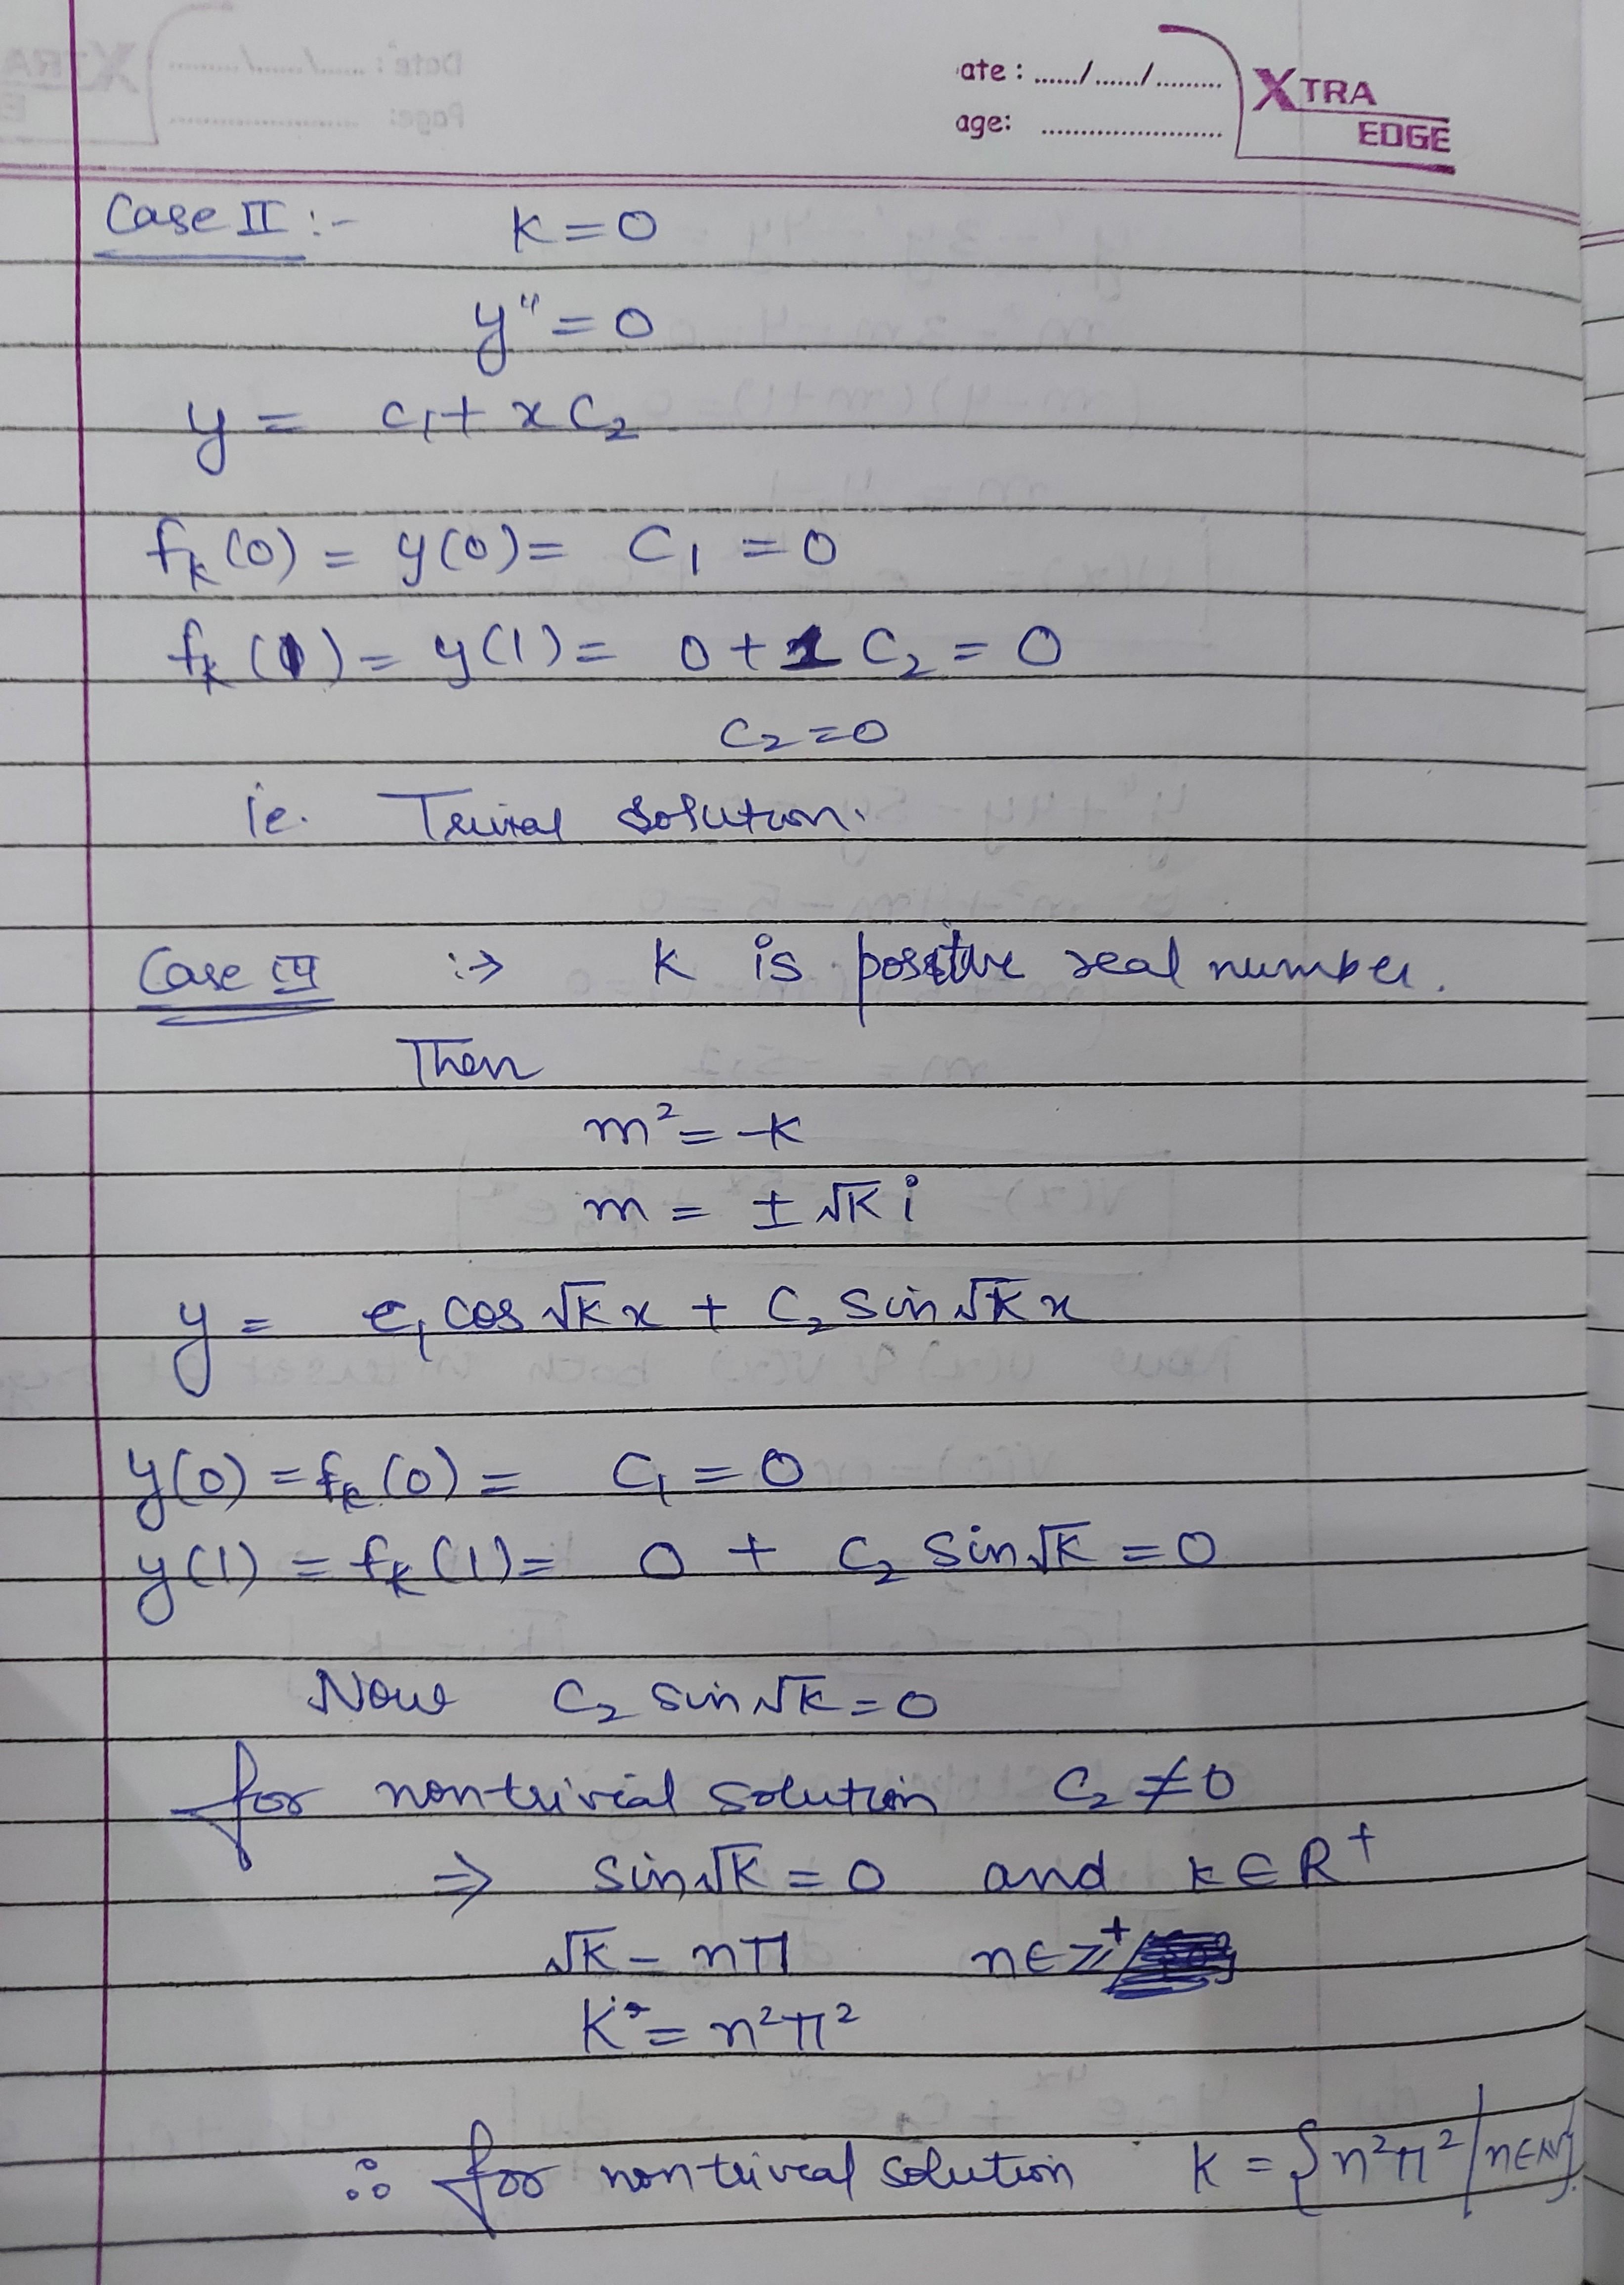 ate : ....../....../.........
age: .........................
XTRA
EDGE
Case II :- K=0
y"=0
y = c₁ + x C₂
fₖ(0) = y(0) = C₁ = 0
fₖ(1) = y(1) = 0 + 1 C₂ = 0
C₂ = 0
ie. Trivial solution.
Case III :→ K is positive real number.
Then
m² = -K
m = ± √K i
y = c₁ cos √K x + C₂ sin √K x
y(0) = fₖ(0) = C₁ = 0
y(1) = fₖ(1) = 0 + C₂ sin √K = 0
Now C₂ sin √K = 0
for nontrivial solution C₂ ≠ 0
⇒ sin √K = 0 and k ∈ R⁺
√K = nπ n ∈ Z⁺
K = n²π²
∴ for nontrivial solution K = {n²π² / n ∈ N}.